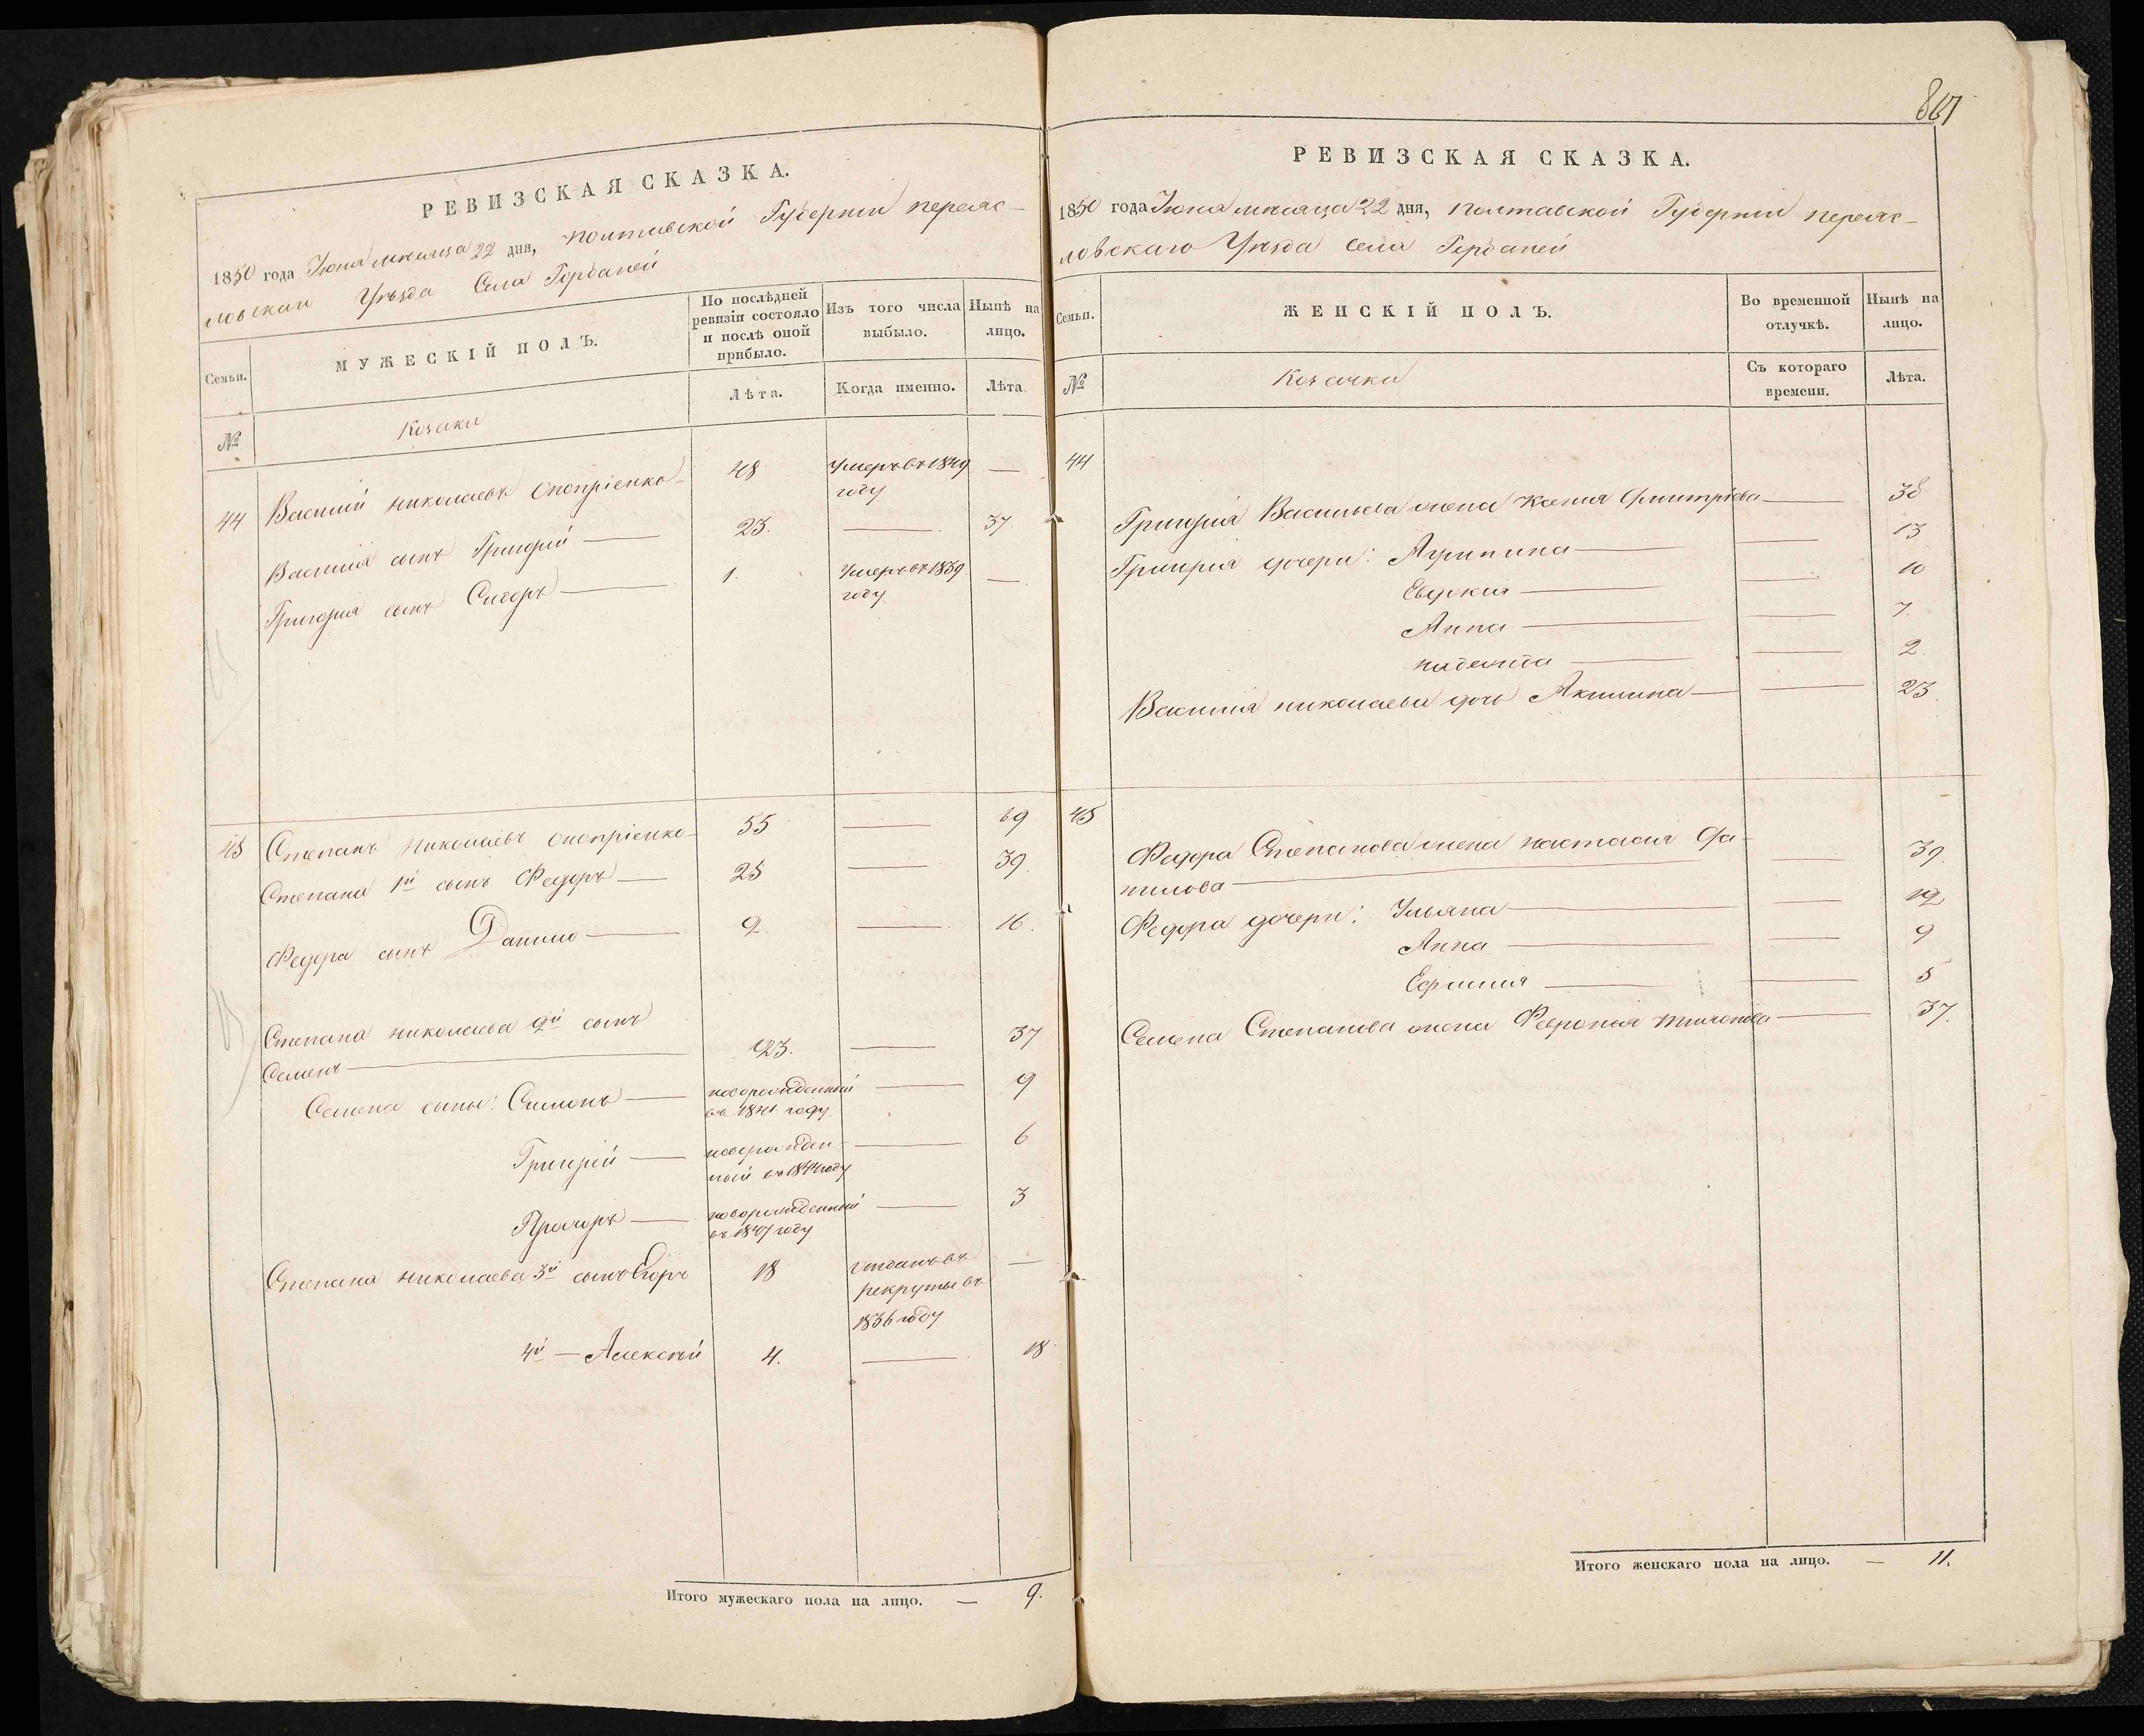 РЕВИЗСКАЯ СКАЗКА.
1850 года Июня месяца 22 дня, Полтавской Губернии Переяс-
ловскаго Уѣзда Села Горбаней
Семьи.
МУЖЕСКІЙ ПОЛЪ.
По послѣдней ревизіи состояло и послѣ оной прибыло.
Изъ того числа выбыло.
Нынѣ на лицо.
№
Козаки
Лѣта.
Когда именно.
Лѣта
44 Василій Николаевъ Оноприенко 48 Умеръ въ 1849 году —
Василія сынъ Григорій — 23. — 37.
Григорія сынъ Сидоръ — 1. Умеръ въ 1839 году —
45 Степанъ Николаевъ Оноприенко 55 — 69
Степана 1й сынъ Федоръ — 25 — 39.
Федора сынъ Данило — 2 — 16.
Степана Николаева 2й сынъ
Семенъ — 23. — 37
Семена сыны: Симонъ — новорожденный въ 1841 году — 9
Григорій — новорожден-
ной въ 1844 году — 6
Прохоръ — новорожденный въ 1847 году — 3
Степана Николаева 3й сынъ Егоръ 18 отданъ въ рекруты въ 1836 году —
4й — Алексѣй 4. — 18
Итого мужескаго пола на лицо. — 9.
867
РЕВИЗСКАЯ СКАЗКА.
1850 года Июня месяца 22 дня, Полтавской Губернии Переяс-
ловскаго Уѣзда Села Горбаней
Семьи.
ЖЕНСКІЙ ПОЛЪ.
Во временной отлучкѣ.
Нынѣ на лицо.
№
Козачки
Съ котораго времени.
Лѣта.
44
Григорія Васильева жена Ксенія Дмитріева — 38
Григорія дочери: Агрипина — — 13
Евдокія — — 10
Анна — — 7
Надежда — — 2
Василія Николаева дочь Акилина — — 23
45
Федора Степанова жена Настасия Да-
нилова — — 39
Федора дочери: Ульяна — — 12
Анна — — 9
— — 5
Семена Степанова жена Феврония — 37.
Итого женскаго пола на лицо. — 11.